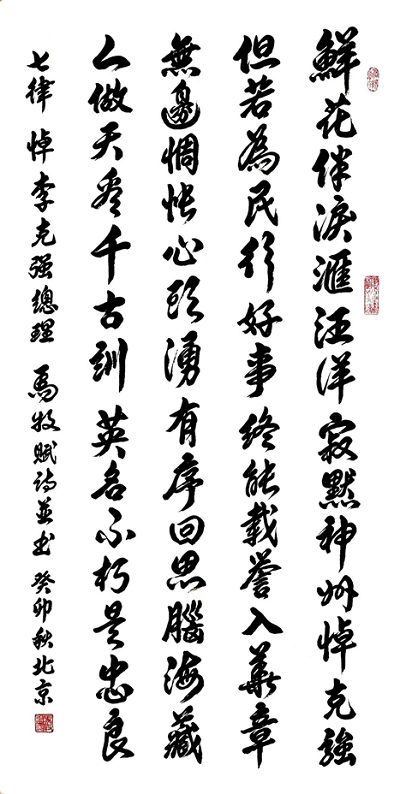 鮮花伴淚滙汪洋寂默神州悼克強
但若為民行好事終能載譽入華章
無邊惆悵心頭湧有序回思腦海藏
人做天看千古訓英名不朽是忠良
七律 悼李克强總理 馬牧賦詩並书 癸卯秋北京